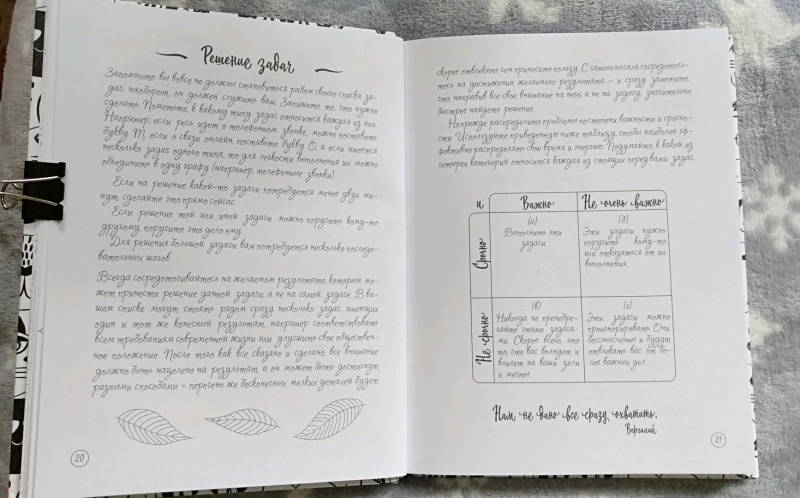 Решение задач
Запомните: вы вовсе не должны становиться рабом своего списка за-
дач, наоборот, он должен служить вам. Запишите то, что нужно
сделать. Пометьте, к какому типу задач относится каждая из них.
Например, если речь идет о телефонном звонке, можно поставить
букву Т, если о связи онлайн, поставьте букву О, а если имеется
несколько задач одного типа, то для легкости выполнения их можно
объединить в одну графу (например, телефонные звонки).
Если на решение какой-то задачи потребуется менее двух ми-
нут, сделайте это прямо сейчас.
Если решение той или иной задачи можно поручить кому-то
другому, поручите это дело ему.
Для решения большой задачи вам потребуется несколько последо-
вательных шагов.
Всегда сосредотачивайтесь на желаемом результате, который мо-
жет принести решение данной задачи, а не на самой задаче. В ва-
шем списке могут стоять рядом сразу несколько задач, имеющих
один и тот же конечный результат, например соответствовать
всем требованиям современной жизни или улучшить свое обществен-
ное положение. После того как все сказано и сделано, все внимание
должно быть нацелено на результат, а он может быть достигнут
разными способами – перечень же бесконечных мелких деталей будет
20
скорее отвлекать, чем приносить пользу. С самого начала сосредоточь-
тесь на достижении желаемого результата – и сразу заметите,
что, направив все свое внимание на него, а не на задачу, значительно
быстрее найдете решение.
Но прежде распределите проблемы по степени важности и срочно-
сти. Используйте приведенную ниже таблицу, чтобы наиболее эф-
фективно распределять свое время и энергию. Подумайте, к какой из
четырех категорий относится каждая из стоящих перед вами задач.
и
Важно
Не очень важно
Срочно
(а)
Выполните эти
задачи.
(б)
Эти задачи нужно
поручить кому-то
или отказаться от их
выполнения.
Не срочно
(в)
Никогда не пренебре-
гайте этими задача-
ми. Скорее всего, это
то, что вас волнует и
влияет на ваши цели
и мечты.
(г)
Эти задачи можно
проигнорировать. Они
бессмысленны и будут
отвлекать вас от бо-
лее важных дел.
Нам не дано все сразу охватить.
Вергилий
21